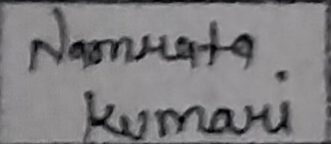 Namrata
Kumari